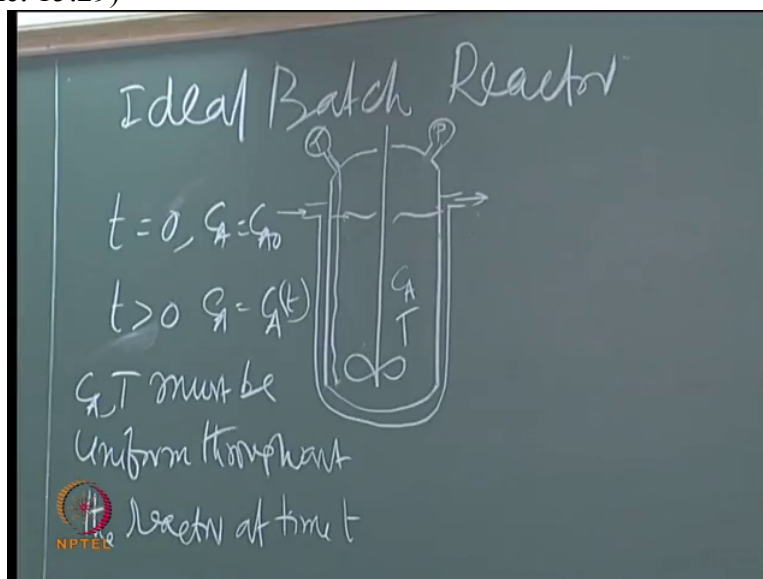 Ideal Batch Reactor
T P
t=0, C_A=C_A0
t>0 C_A=C_A(t)
C_A
T
C_A, T must be
Uniform throughout
the reactor at time t
NPTEL